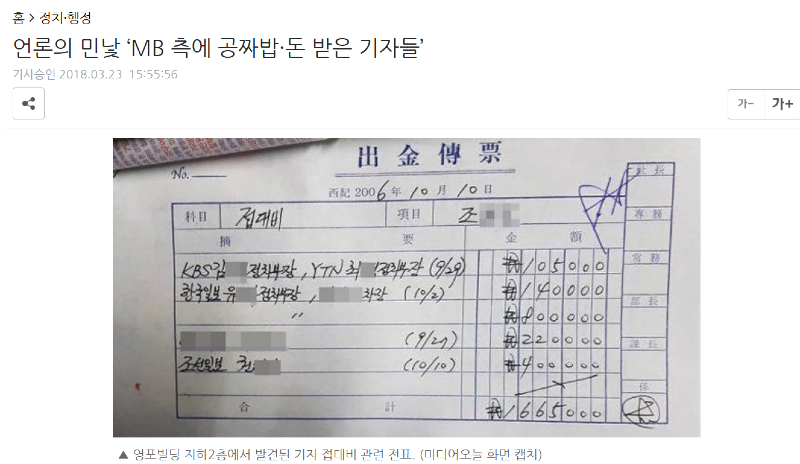 홈 > 정치·행정
언론의 민낯 ‘MB 측에 공짜밥·돈 받은 기자들’
기사승인 2018.03.23 15:55:56
가- 가+
出金傳票
No.
西紀 2006年 10月 10日
科目 접대비 項目 조
摘要 金額
KBS김 정치부장, YTN 최 정치부장 (9/29) ₩105000
한국일보 유 정치부장, 차장 (10/2) ₩140000
〃 ₩800000
(9/27) ₩220000
조선일보 권 (10/10) ₩400000
合計 ₩1665000
社長
專務
常務
部長
課長
係
▲ 영포빌딩 지하2층에서 발견된 기자 접대비 관련 전표. (미디어오늘 화면 캡처)